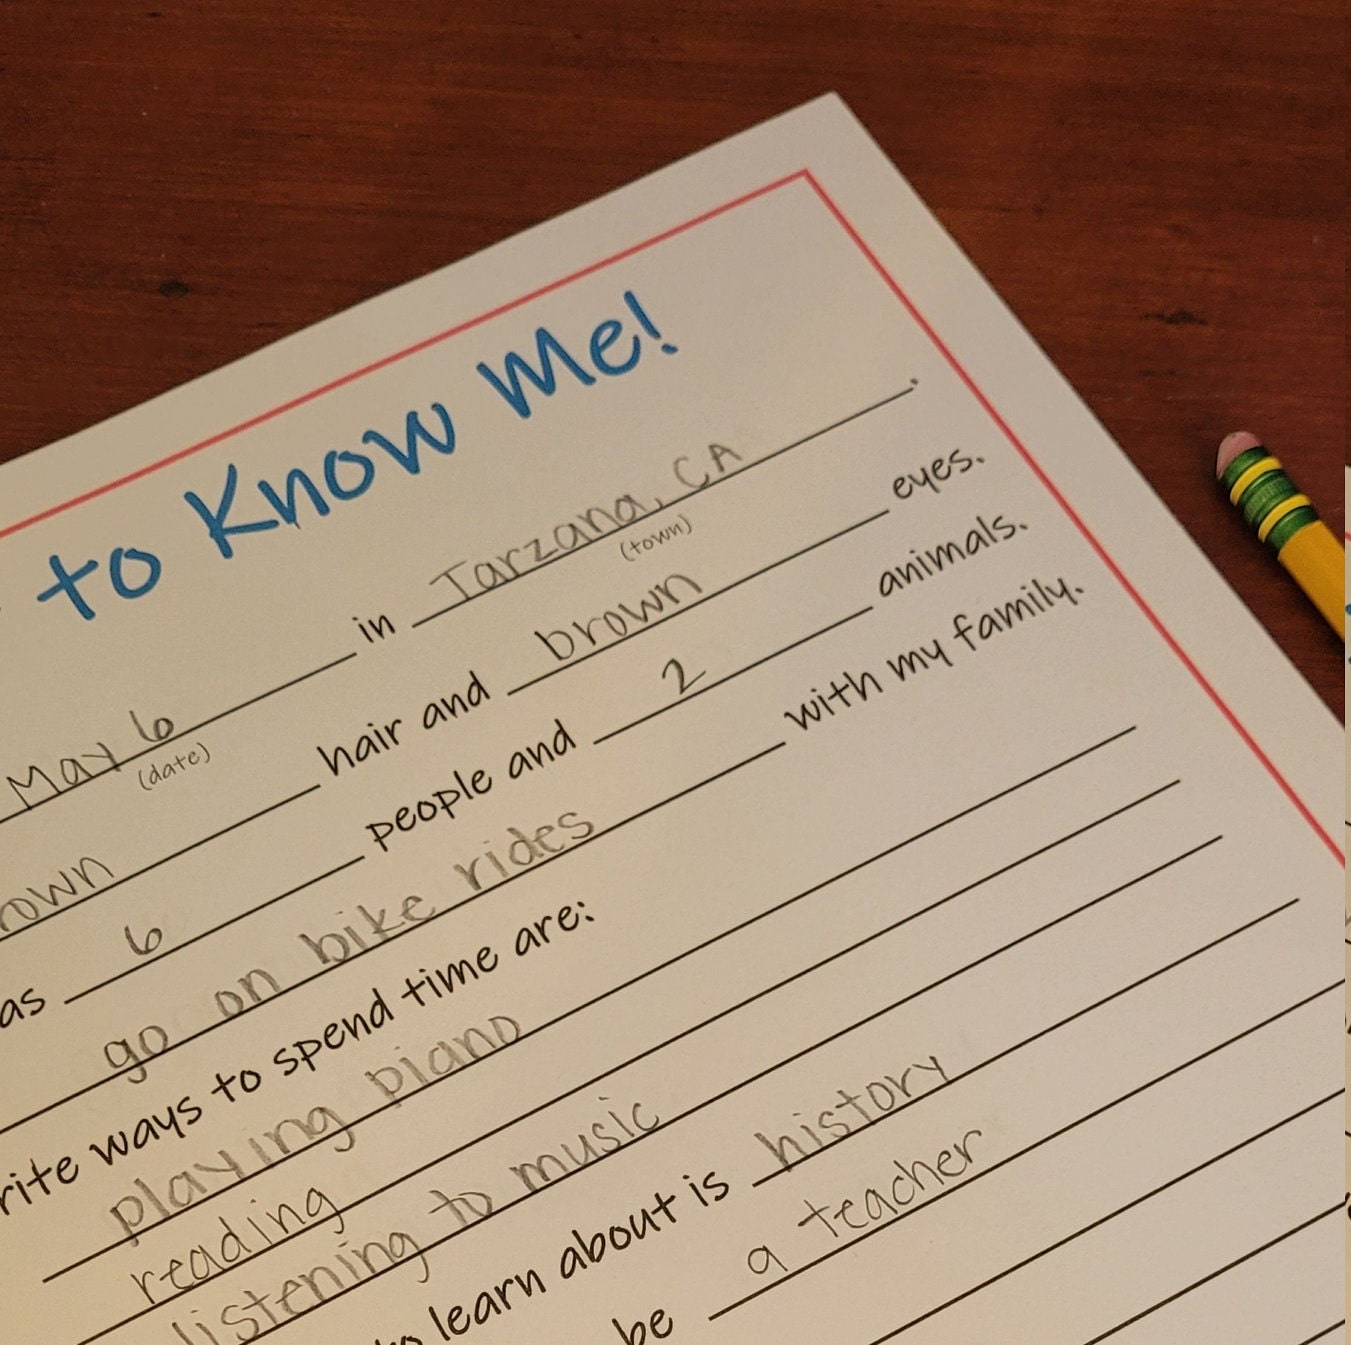 to Know Me!
May 6 in Tarzana, CA.
(date) (town)
hair and brown eyes.
as 6 people and 2 animals.
go on bike rides with my family.
ways to spend time are:
playing piano
reading
listening to music
to learn about is history
be a teacher